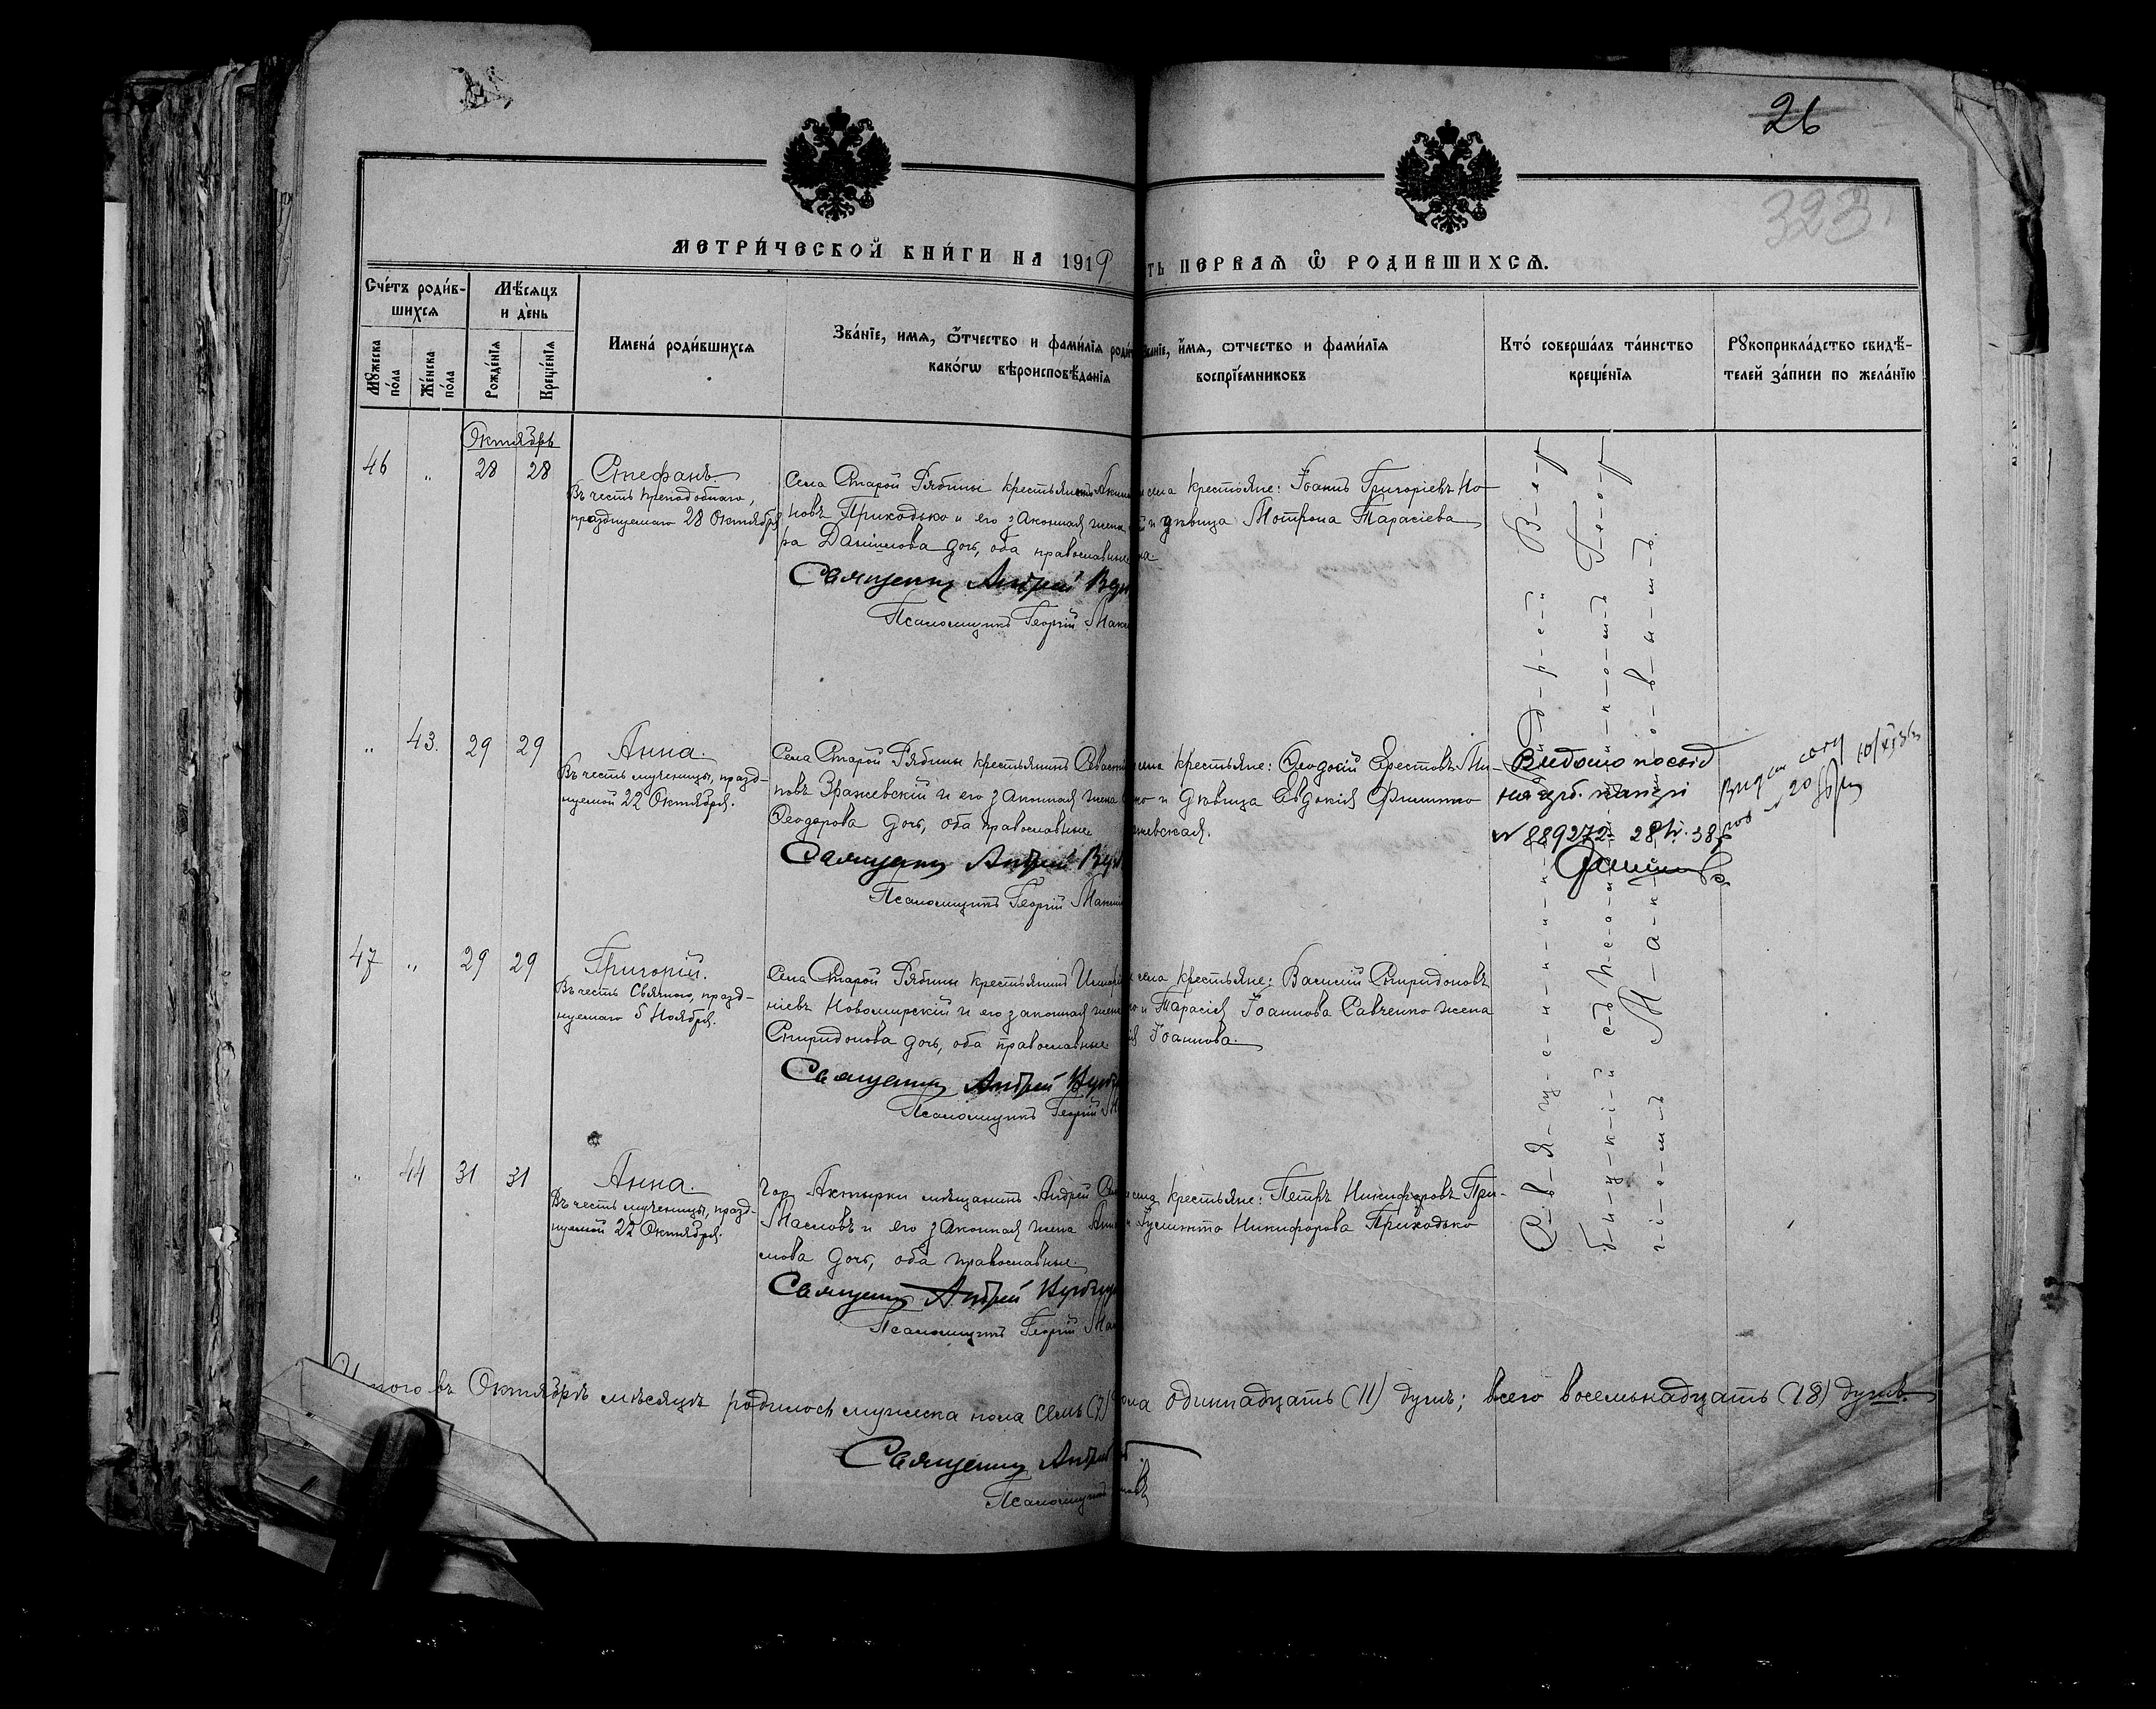 26
323
МЕТРИ́ЧЕСКОЙ КНИ́ГИ НА 1919
ТЬ ПЕРВАѦ Ѿ РОДИВШИХСѦ.
Сче́тъ роди́в-
шихсѧ
Мѣ́сѧцъ
и де́нь
Мꙋжеска по́ла
Же́нска по́ла
Рожде́нїѧ
Креще́нїѧ
Имена́ роди́вшихсѧ
Зва́нїе, имѧ, ѻ҆́тчество и фами́лїѧ роди
како́гѡ вѣроисповѣ́данїѧ
Зва́нїе, и҆мѧ, ѻтчество и фами́лїѧ
воспрїе́мниковъ
Кто́ соверша́лъ та́инство
креще́нїѧ
Рꙋкоприкла́дство свидѣ́-
телей за́писи по жела́нїю
Октябрь
46 " 28 28
Стефанъ.
Въ честь преподобнаго,
празднуемаго 28 Октября
Села Старой Рябины крестьянинъ
новъ Приходько и его законная жена
ра Даніилова дочь, оба православные
Священникъ Андрей
Псаломщикъ Георгій Мак
села крестьяне: Іоаннъ Григоріевъ По-
й и дѣвица Мотрона Тарасіева
на.
" 43. 29 29
Анна.
Въ честь мученицы, празд-
нуемой 22 Октября.
Села Старой Рябины крестьянинъ Севасті
новъ Зражевскій и его законная жена
Ѳеодорова дочь, оба православные
Священникъ Андрей
Псаломщикъ Георгій Макси
села крестьяне: Ѳеодосій Ерестовъ Ми-
ко и дѣвица Евдокія Филиппо
жевская.
Видано посвід
№ 889272 28 38
47 " 29 29
Григорій.
Въ честь Святаго, празд-
нуемаго 5 Ноября.
Села Старой Рябины крестьянинъ
ніевъ Новомирскій и его законная жена
Спиридонова дочь, оба православные
Священникъ Андрей
Псаломщикъ Георгій М
села крестьяне: Василій Спиридоновъ
ко и Тарасія Іоаннова Савченко жена
ія Іоаннова.
" 44 31 31
Анна.
Въ честь мученицы, празд-
нуемой 22 Октября.
Гор. Ахтырки мѣщанинъ Андрей
Масловъ и его законная жена Анн
мова дочь, оба православные.
Священникъ Андрей
Псаломщикъ Георгій Мак
села крестьяне: Петръ Никифоровъ При-
Никифорова Приходько
С-в-я-щ-е-н-н-и-к-ъ А-н-д-р-е-й В-е-р-
б-и-ц-к-і-й с-ъ П-с-а-л-о-м-щ-и-к-о-м-ъ Г-е-о-р-
г-і-е-м-ъ М-а-к-с-и-м-о-в-ы-м-ъ.
Итого въ Октябрѣ мѣсяцѣ родилось мужеска пола семь (7)
пола одиннадцать (11) душъ; всего восемьнадцать (18) душъ.
Священникъ Андрей
Псаломщикъ